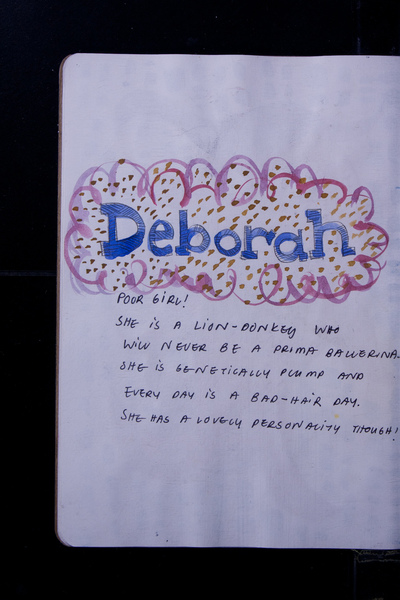 Deborah
POOR GIRL!
SHE IS A LION-DONKEY WHO
WILL NEVER BE A PRIMA BALLERINA.
SHE IS GENETICALLY PLUMP AND
EVERY DAY IS A BAD-HAIR DAY.
SHE HAS A LOVELY PERSONALITY THOUGH!